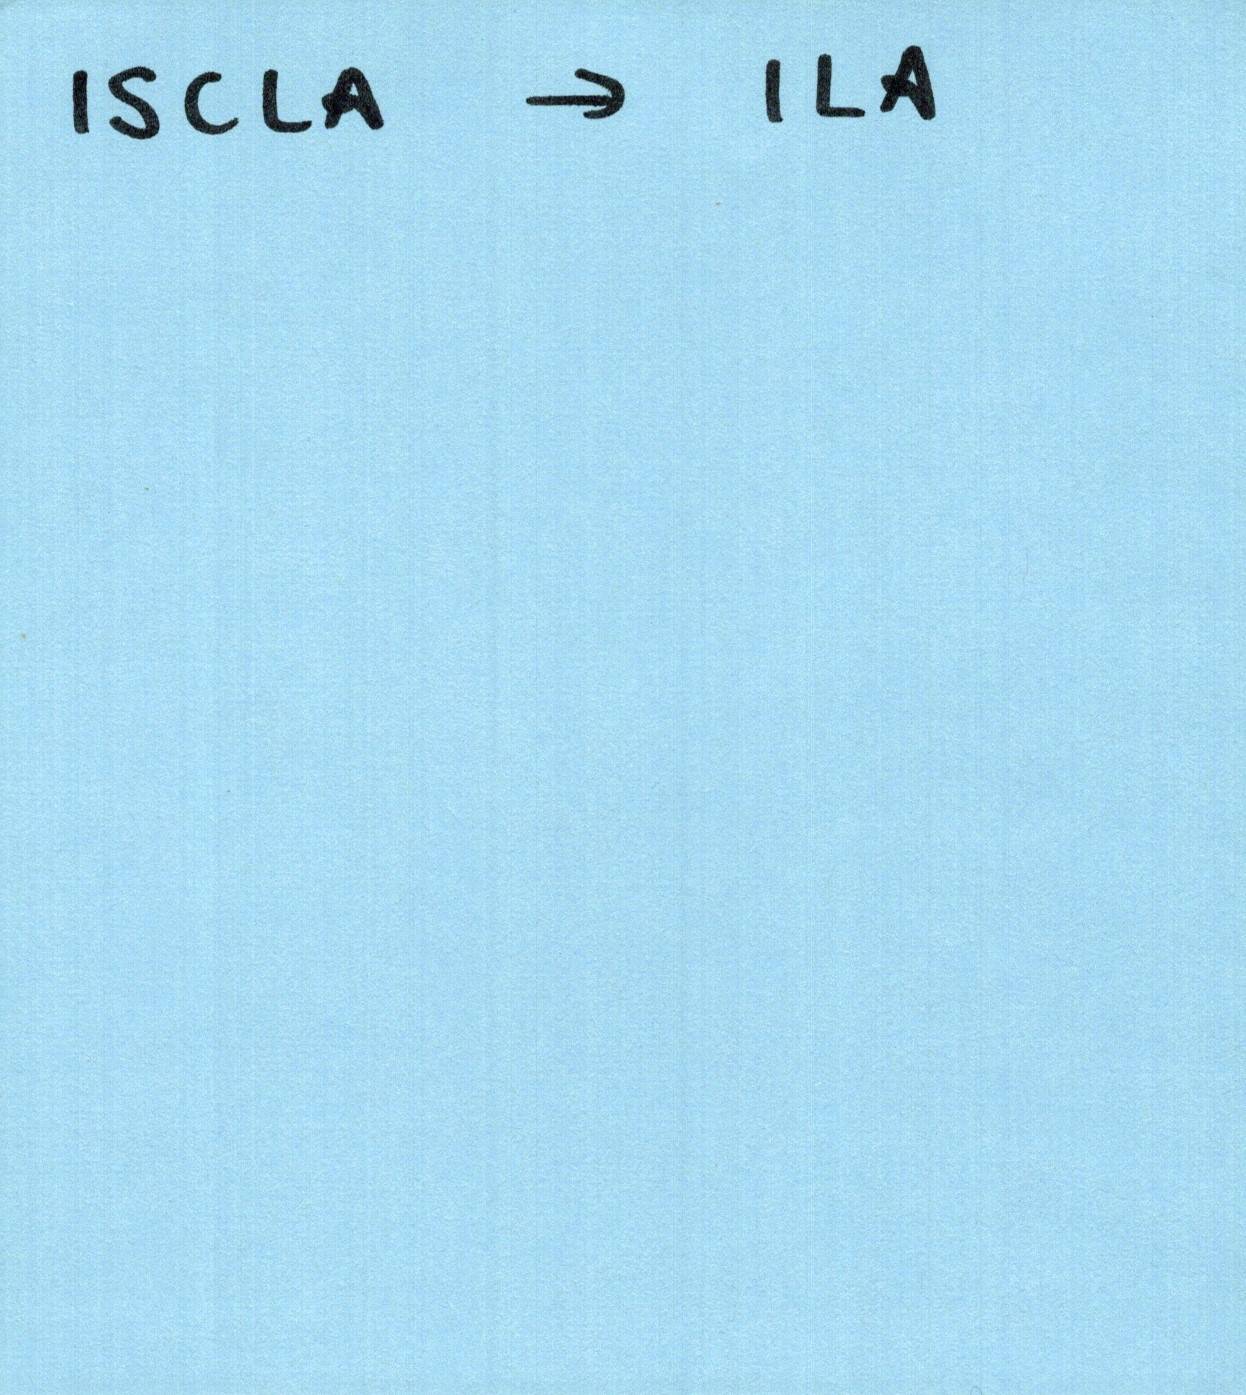 ISCLA → ILA